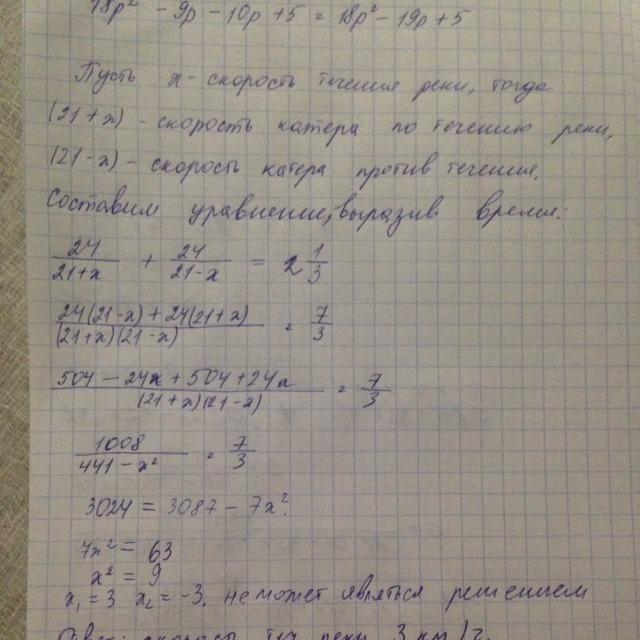 18p² - 9p - 10p + 5 = 18p² - 19p + 5
Пусть x - скорость течения реки, тогда
(21+x) - скорость катера по течению реки,
(21-x) - скорость катера против течения.
Составим уравнение, выразив время:
24/(21+x) + 24/(21-x) = 2 1/3
(24(21-x) + 24(21+x))/((21+x)(21-x)) = 7/3
(504 - 24x + 504 + 24x)/((21+x)(21-x)) = 7/3
1008/(441 - x²) = 7/3
3024 = 3087 - 7x².
7x² = 63
x² = 9
x₁ = 3 x₂ = -3. не может являться решением
Ответ: скорость теч. реки 3 км/ч.